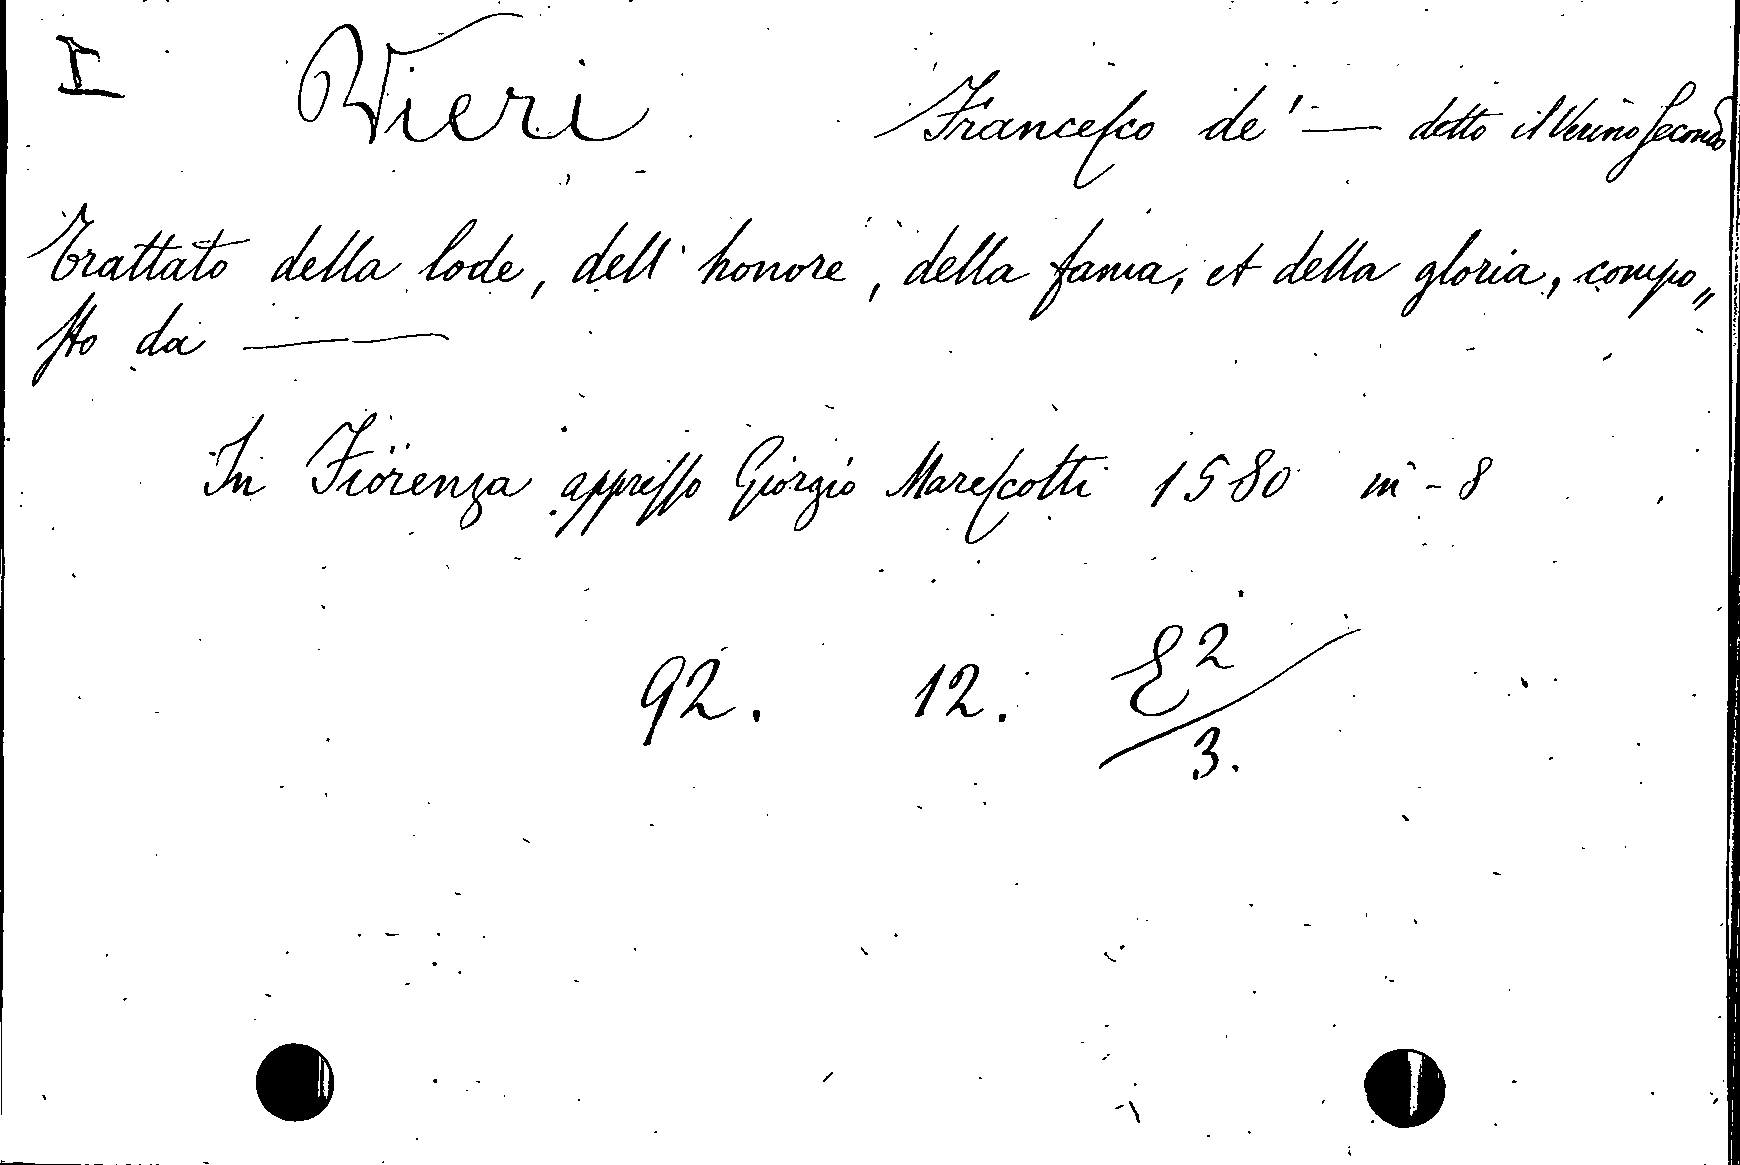 I Vieri Franceſco de' — detto il Verino ſecondo
Trattato della lode, dell' honore, della fama, et della gloria, compo„
ſto da ——
In Fiorenza appreſſo Giorgio Mareſcotti 1580 in-8
92. 12. E 2/3.